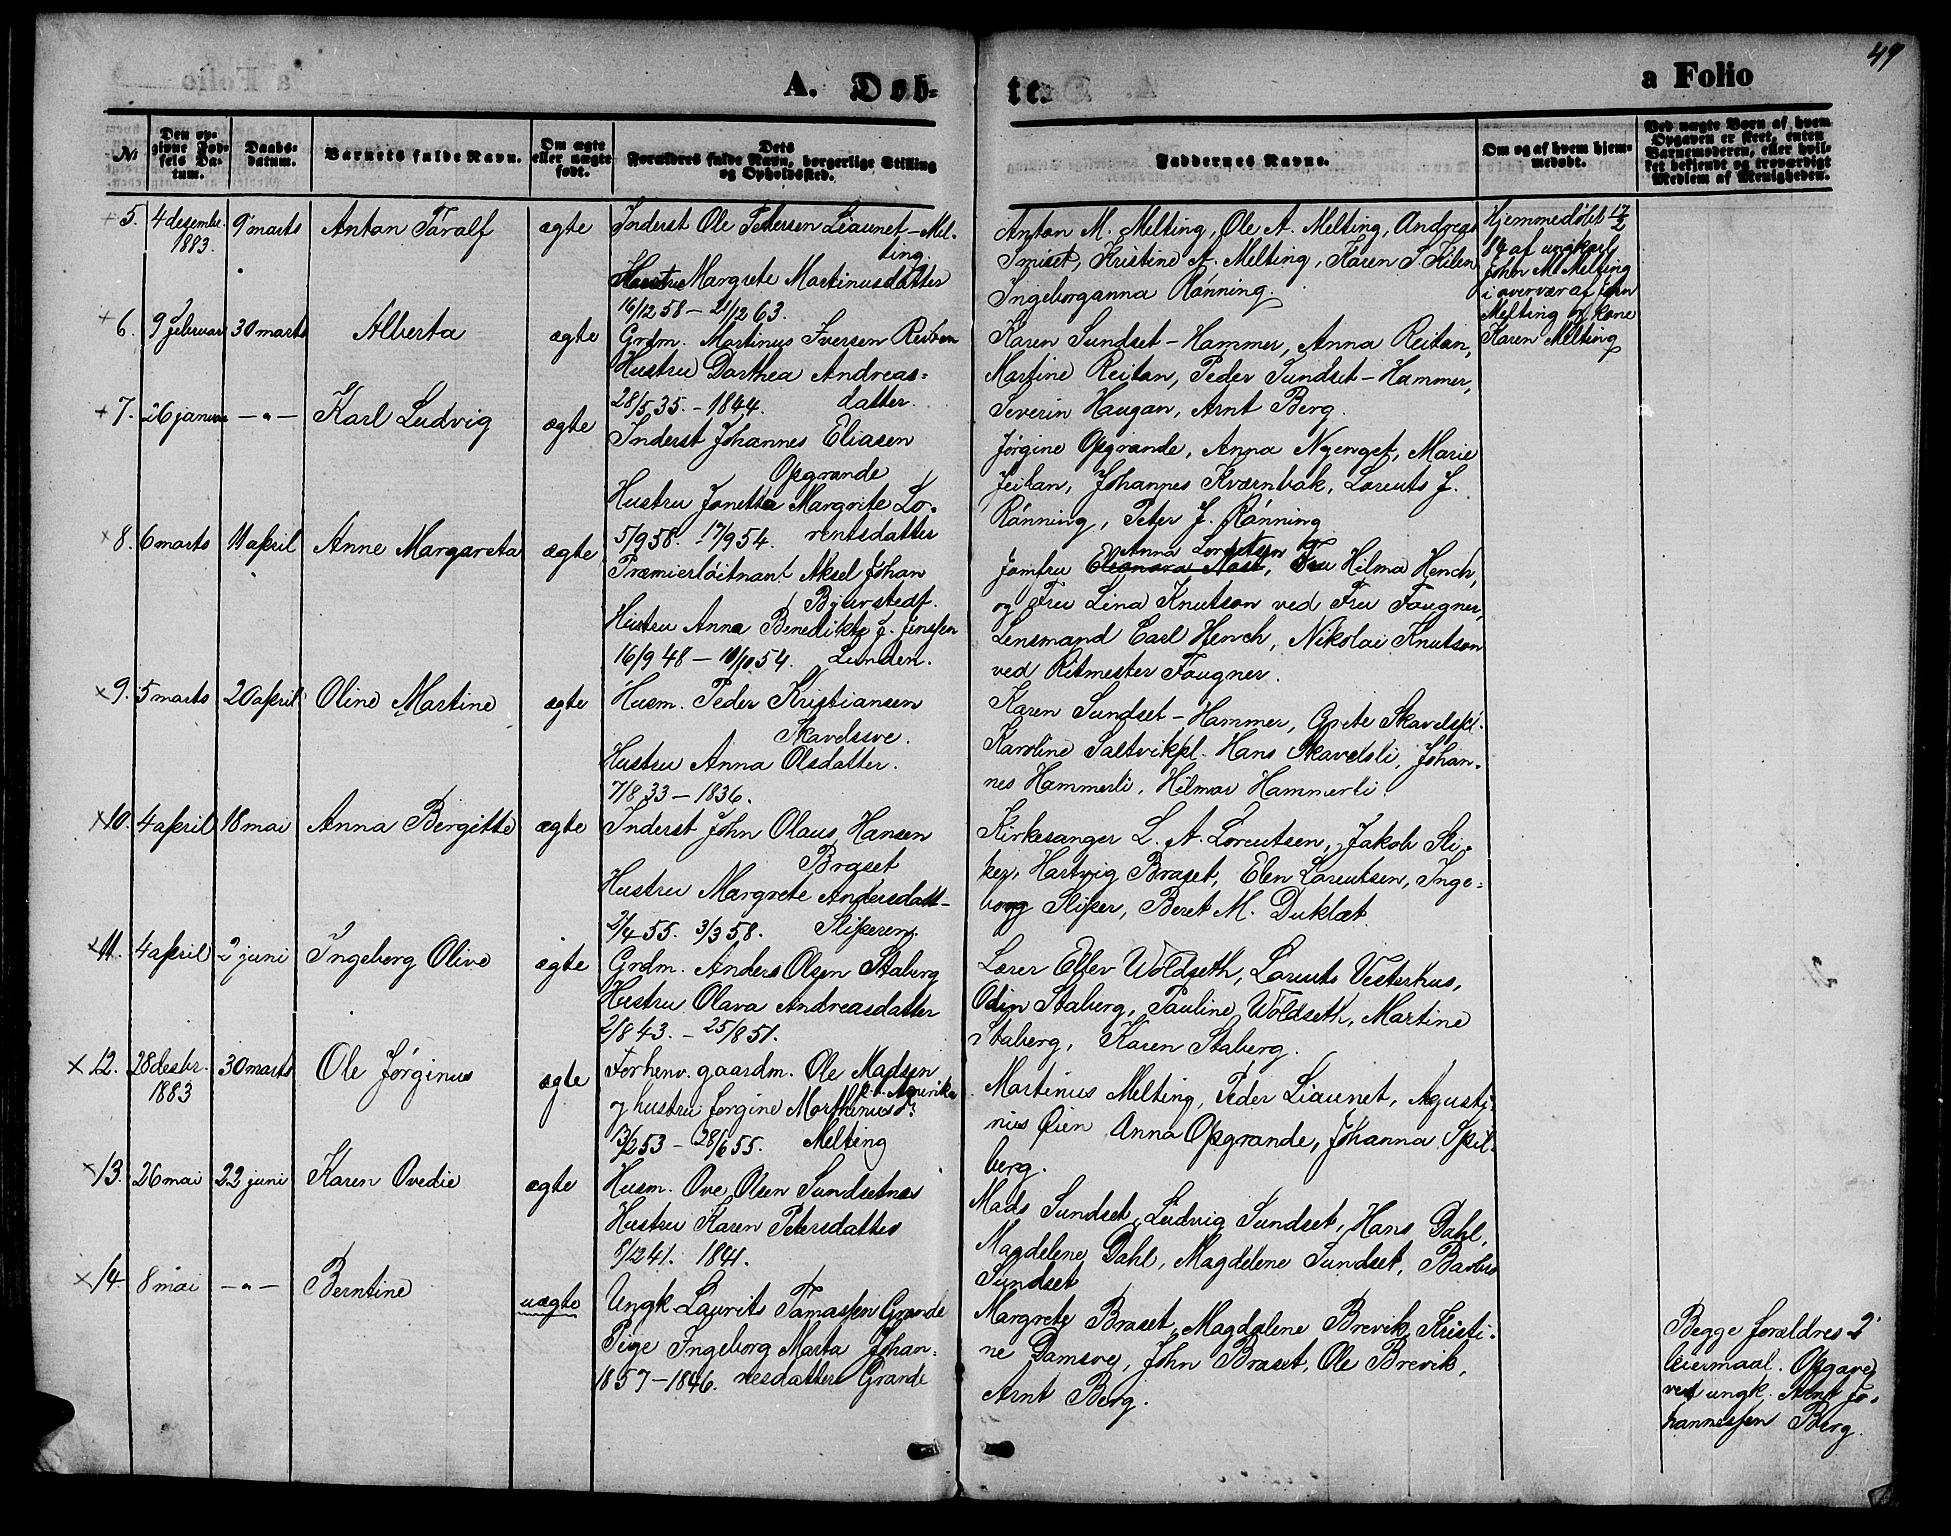 49
A. Døb-
te.
a Folio
№
Den op-
givne Fød-
sels Da-
tum.
Daabs-
datum.
Barnets fulde Navn.
Om ægte
eller uægte
født.
Dets
Forældres fulde Navn, borgerlige Stilling
og Opholdssted.
Faddernes Navne.
Om og af hvem hjem-
medøbt.
Ved uægte Børn af hvem
Opgaven er skeet, enten
Barnemoderen, eller hvil-
ket bekjendt og troværdigt
Medlem af Menigheden.
5. 4 desembr. 9 marts Anton Taralf ægte Inderst Ole Petersen Liaunet-Mel-
1883.
ting.
Hustru Margrete Martinusdatter
16/12 58 - 21/12 63.
Anton M. Melting, Ole A. Melting, Andreas
Smiset, Kristine A. Melting, Karen S Kilen
Ingeborganna Rønning.
Hjemmedøbt 17/2
84 af ungkarl
John M Melting
i overvær af John
Melting og kone
Karen Melting
6. 9 februar 30 marts Alberta ægte Grdm. Martinus Iversen Reitan
Hustru Dorthea Andreas-
28/5 35. - 1844. datter.
Karen Sundset-Hammer, Anna Reitan,
Martine Reitan, Peder Sundset-Hammer,
Severin Haugan, Arnt Berg.
7. 26 januar -„- Karl Ludvig ægte Inderst Johannes Eliasen
Opgrande
Hustru Janetta Margrite Lo-
5/9 58. 17/9 54. rentsdatter
Jørgine Opgrande, Anna Nyenget, Marie
Jeitan, Johannes Kværnbak, Lorents J.
Rønning, Peter J. Rønning
8. 6 marts 11 april Anne Margareta ægte Præmierløitnant Aksel Johan
Bjerstedt.
Hustru Anna Benedikte J. Jenssen
16/9 48 - 10/10 54. Lunden.
Anna Lorentsen
Jomfru Eleonora Aast, Fru Hilma Hench,
og Fru Lina Knutson ved Fru Fougner,
Lensmand Carl Hench, Nikolai Knutson
ved Ritmester Fougner.
9. 5 marts 20 april Oline Martine ægte Husm. Peder Kristiansen
Skavdssve.
Hustru Anna Olsdatter.
7/8 33 - 1836.
Karen Sundset-Hammer, Grete Skavdspl.
Karoline Saltvikpl. Hans Skavdsli, Johan-
nes Hammerli, Hilmar Hammerli.
10. 4 april 18 mai Anna Bergitte ægte Inderst John Olaus Hansen
Braset
Hustru Margrete Andersdatt-
2/4 55. 3/3 58. Sliperen.
Kirkesanger L. A. Lorentsen, Jakob Sli-
per, Hartvig Braset, Elen Lorentsen, Inge-
borg Sliper, Beret M. Duklæt.
11. 4 april 2 juni Ingeborg Olive ægte Grdm. Anders Olsen Staberg
Hustru Olava Andreasdatter
2/8 43. - 25/8 51.
Lærer Ellev Woldseth, Lorents Vesterhus,
Odin Staberg, Pauline Woldseth, Martine
Staberg, Karen Staberg.
12. 28 desbr. 30 marts Ole Jørginus ægte Forhenv. gaardm. Ole Madsen
1883
p.t. Amerika
og hustru Jørgine Morthinusd:
13/2 53 - 28/6 55. Melting
Martinus Melting, Peder Liaunet, Agusti-
nus Øien Anna Opgrande, Johanna Spil-
berg.
13. 26 mai 22 juni Karen Ovedie ægte Husm. Ove Olsen Sundsetnes
Hustru Karen Petersdatter
5/12 41. 1841.
Mads Sundset, Ludvig Sundset, Hans Dahl,
Magdelene Dahl, Magdelene Sundset, Barbro
Sundset
14. 8 mai -„- Berntine uægte Ungk. Laurits Tomassen Grande
Pige Ingeborg Marta Johan-
1857 - 1846. nesdatter Grande
Margrete Braset, Magdalene Brevik, Kristi-
ne Damsve, John Braset, Ole Brevik,
Arnt Berg.
Begge forældres 2'
leiermaal. Opgave
ved ungk. Arnt Jo-
hannessen Berg.